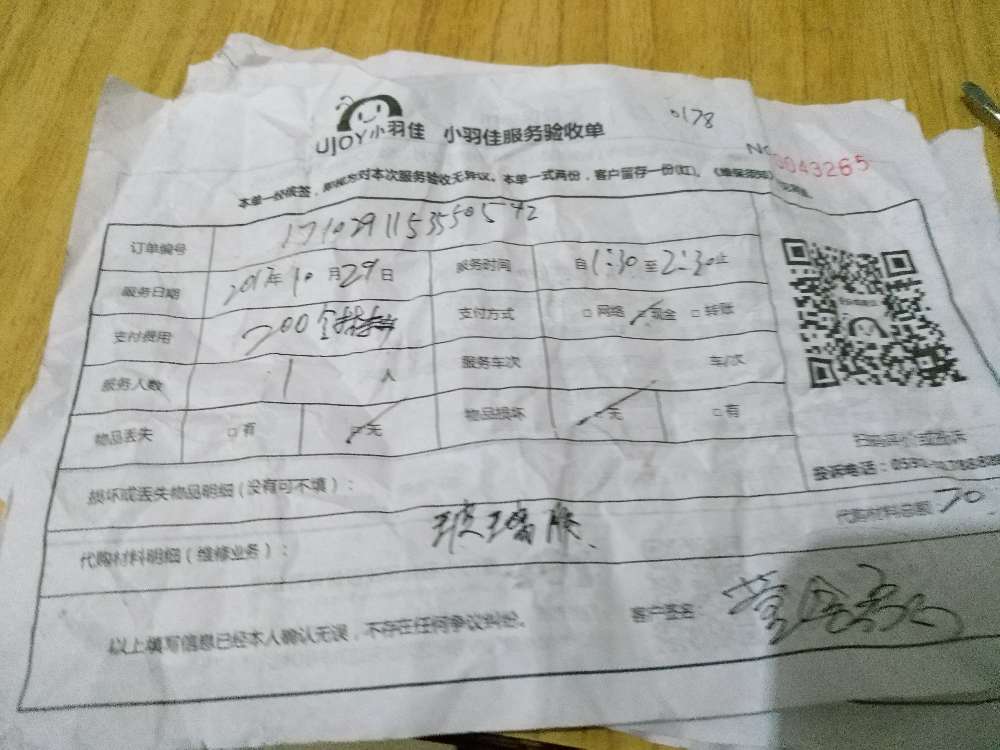 0178
UJOY小羽佳 小羽佳服务验收单
No 0043265
本单一经依签，即视为对本次服务验收无异议。本单一式两份，客户留存一份(红)。《维保须知》
订单编号 1710291153550542
服务日期 2017年10月29日 服务时间 自1:30至2:30止
支付费用 200 支付方式 □网络 □现金 □转账
服务人数 1人 服务车次 车/次
物品丢失 □有 □无 物品损坏 □无 □有
扫码评价或投诉
投诉电话：0592-
损坏或丢失物品明细(没有可不填)：
代购材料明细(维修业务)： 玻璃胶 代购材料总额 70
以上填写信息已经本人确认无误，不存在任何争议纠纷。 客户签名：